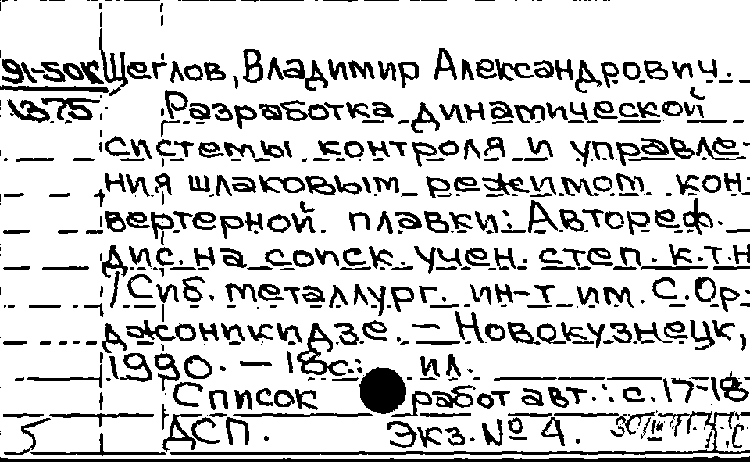 91-50к Щеглов, Владимир Александрович.
1375 Разработка динамической
системы контроля и управле-
ния шлаковым режимом кон-
вертерной плавки: Автореф.
дис. на соиск. учен. степ. к.т.н
/Сиб. металлург. ин-т им. С. Ор-
джоникидзе. — Новокузнецк,
1990. — 18с: ил.
Список работ авт.: с. 17-18
5 ДСП. Экз. № 4.